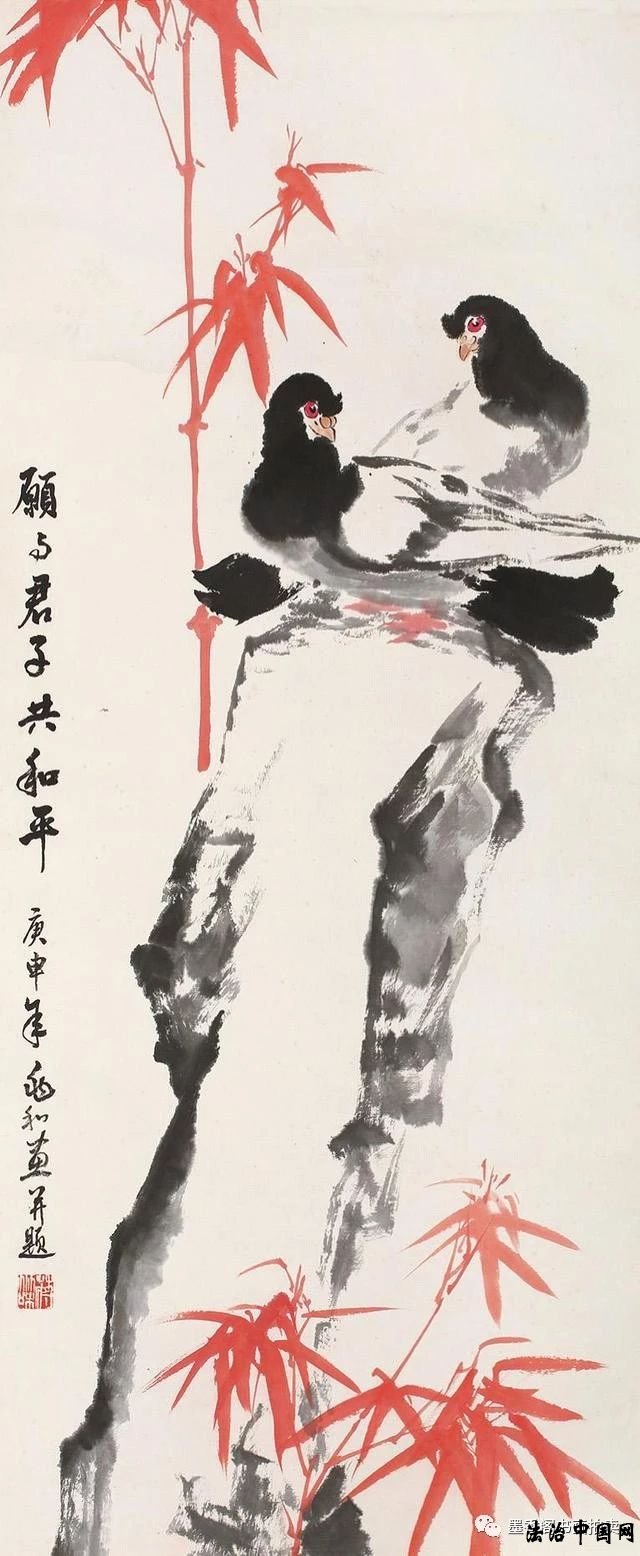 願与君子共和平
庚申年兆和画并題
法治中国网